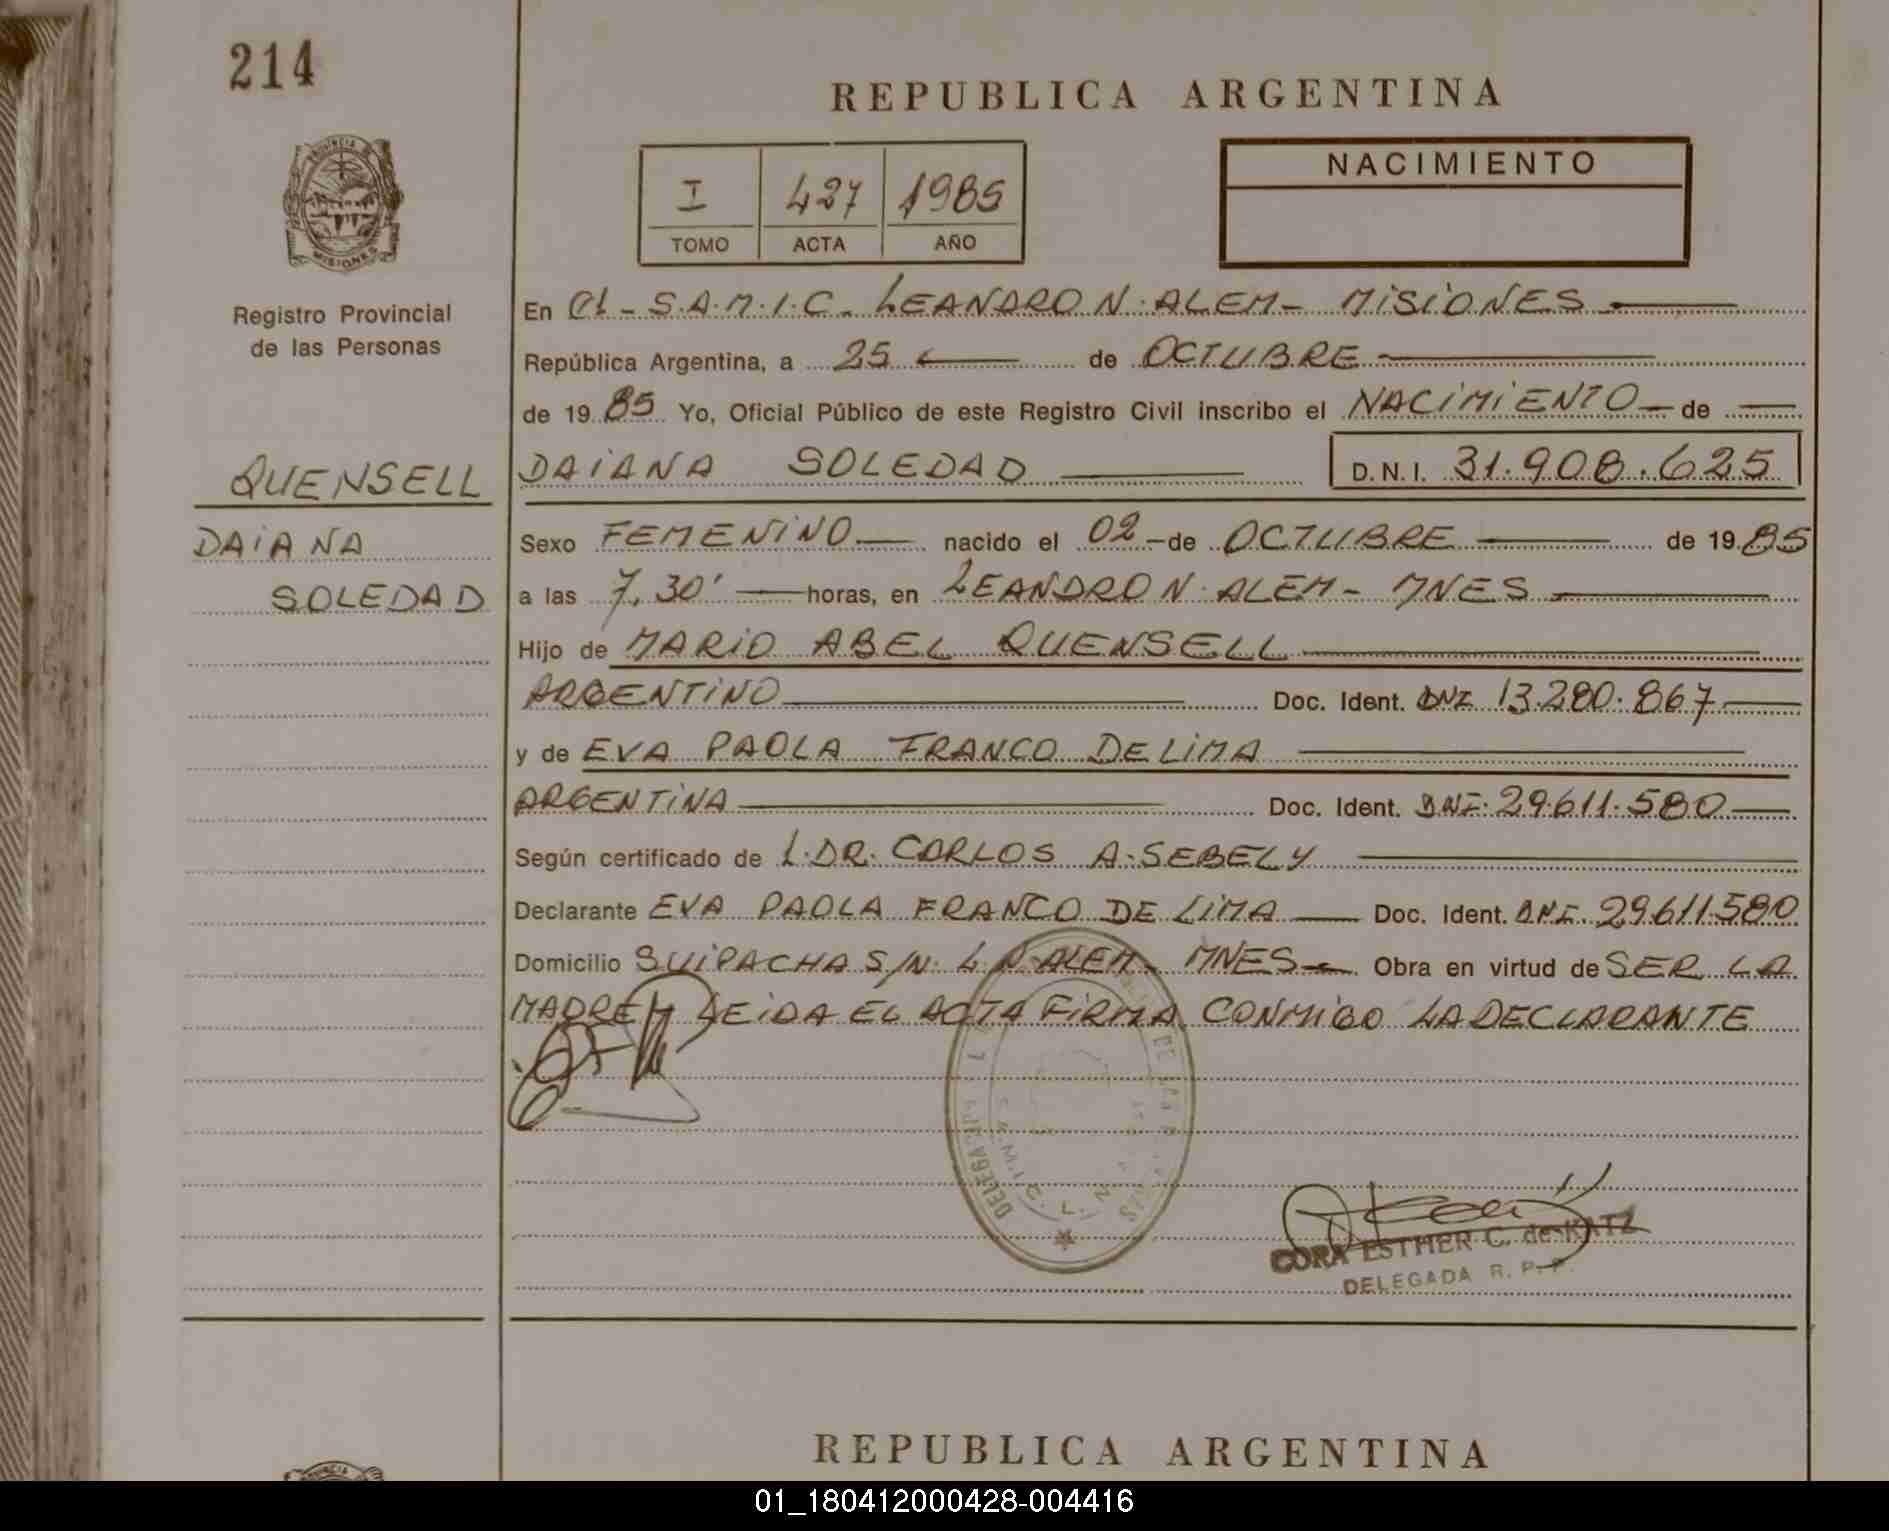 214
REPUBLICA ARGENTINA
PROVINCIA DE
MISIONES
Registro Provincial
de las Personas
I 427 1985
TOMO ACTA AÑO
NACIMIENTO
En el - S.A.M.I.C. LEANDRO N. ALEM - MISIONES
República Argentina, a 25 de OCTUBRE
de 19 85 Yo, Oficial Público de este Registro Civil inscribo el NACIMIENTO de
QUENSELL
DAIANA
SOLEDAD
DAIANA SOLEDAD D.N.I. 31.908.625
Sexo FEMENINO nacido el 02 - de OCTUBRE de 19 85
a las 7,30' horas, en LEANDRO N. ALEM - MNES
Hijo de MARIO ABEL QUENSELL
ARGENTINO Doc. Ident. DNI 13.280.867
y de EVA PAOLA FRANCO DE LIMA
ARGENTINA Doc. Ident. DNI. 29.611.580
Según certificado de L. DR. CARLOS A. SEBELY
Declarante EVA PAOLA FRANCO DE LIMA Doc. Ident. DNI. 29.611.580
Domicilio SUIPACHA S/N. L.N. ALEM - MNES - Obra en virtud de SER LA
MADRE LEIDA EL ACTA FIRMA CONMIGO LA DECLARANTE
CORA ESTHER C. de KATZ
DELEGADA R. P. P.
REPUBLICA ARGENTINA
01_180412000428-004416